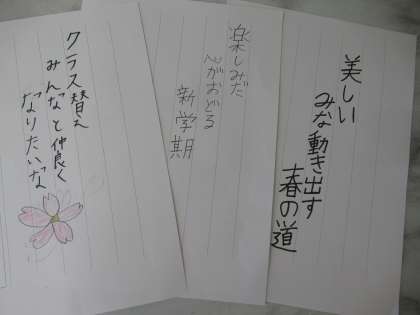 美しい
みな動き出す
春の道
楽しみだ
心がおどる
新学期
クラス替え
みんなと仲良く
なりたいな